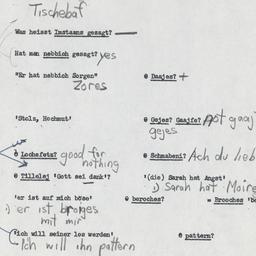 Tischebaf
Was heisst Instanns gesagt? —
Hat man nebbich gesagt? yes
"Er hat nebbich Sorgen" @ Daajes? +
Zores
'Stolz, Hochmut' @ Gejes? Gaajfe? not gaaj
gejes
@ Lochefets? good for nothing @ Schmabeni? Ach du lieb
@ Tillelej 'Gott sei dank'? '(die) Sarah hat Angst'
:) Sarah hat Moire
'er ist auf mich böse' @ beroches? = Brooches 'be
:) er ist broiges
mit mir
'ich will seiner los werden' @ pattern?
Ich will ihn pattern